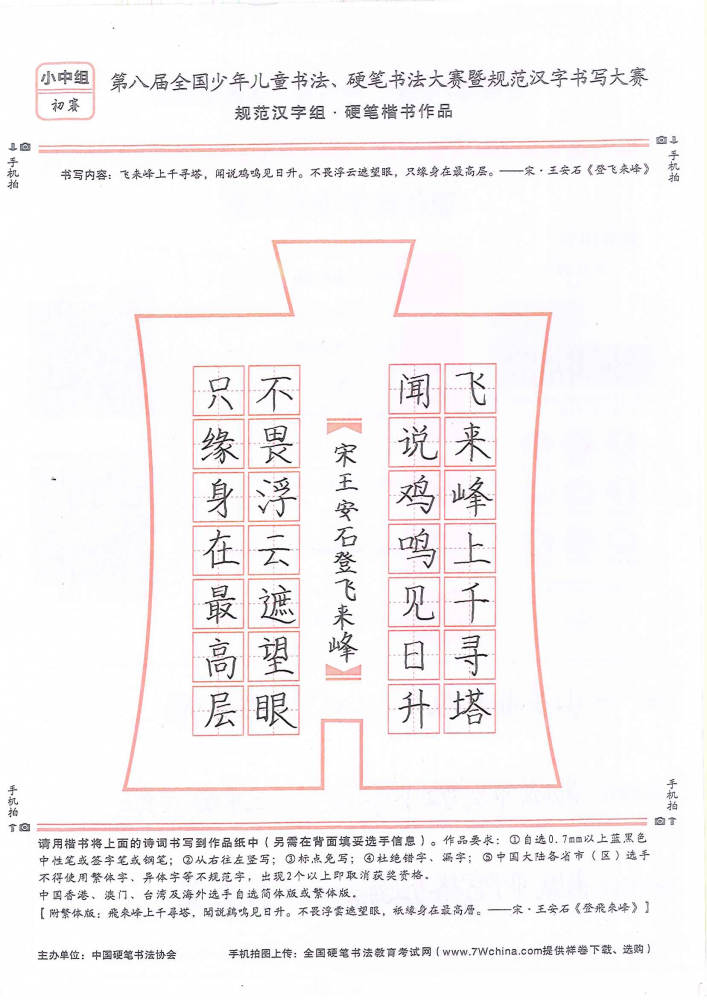 小中组
初赛
第八届全国少年儿童书法、硬笔书法大赛暨规范汉字书写大赛
规范汉字组·硬笔楷书作品
手机拍
手机拍
书写内容：飞来峰上千寻塔，闻说鸡鸣见日升。不畏浮云遮望眼，只缘身在最高层。——宋·王安石《登飞来峰》
飞来峰上千寻塔
闻说鸡鸣见日升
宋王安石登飞来峰
不畏浮云遮望眼
只缘身在最高层
手机拍
手机拍
请用楷书将上面的诗词书写到作品纸中（另需在背面填妥选手信息）。作品要求：①自选0.7mm以上蓝黑色
中性笔或签字笔或钢笔；②从右往左竖写；③标点免写；④杜绝错字、漏字；⑤中国大陆各省市（区）选手
不得使用繁体字、异体字等不规范字，出现2个以上即取消获奖资格。
中国香港、澳门、台湾及海外选手自选简体版或繁体版。
[附繁体版：飛來峰上千尋塔，聞說鷄鳴見日升。不畏浮雲遮望眼，祇緣身在最高層。——宋·王安石《登飛來峰》]
主办单位：中国硬笔书法协会
手机拍图上传：全国硬笔书法教育考试网（www.7Wchina.com提供样卷下载、选购）